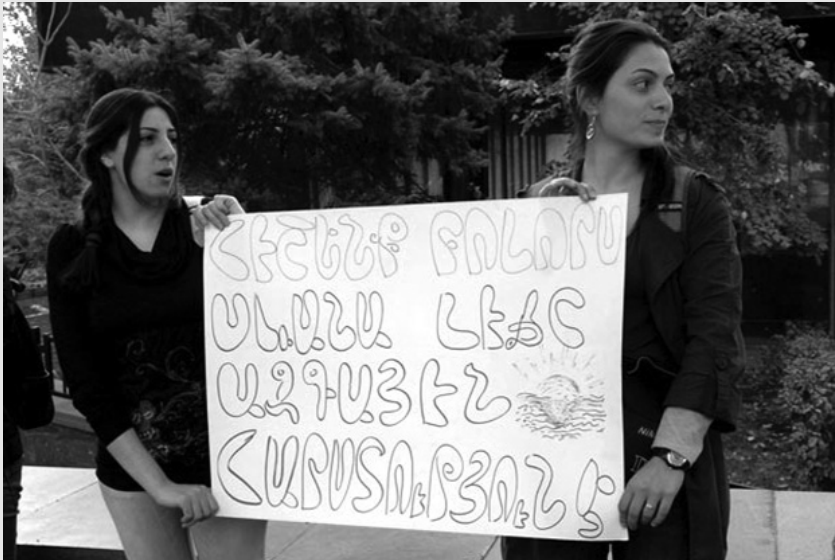 ՀԻՇԵՆՔ ԲՈԼՈՐՍ
ՍևԱՆԱ ԼԻՃԸ
ԱԶԳԱՅԻՆ
ՀԱՐՍՏՈւԹՅՈւՆ Է